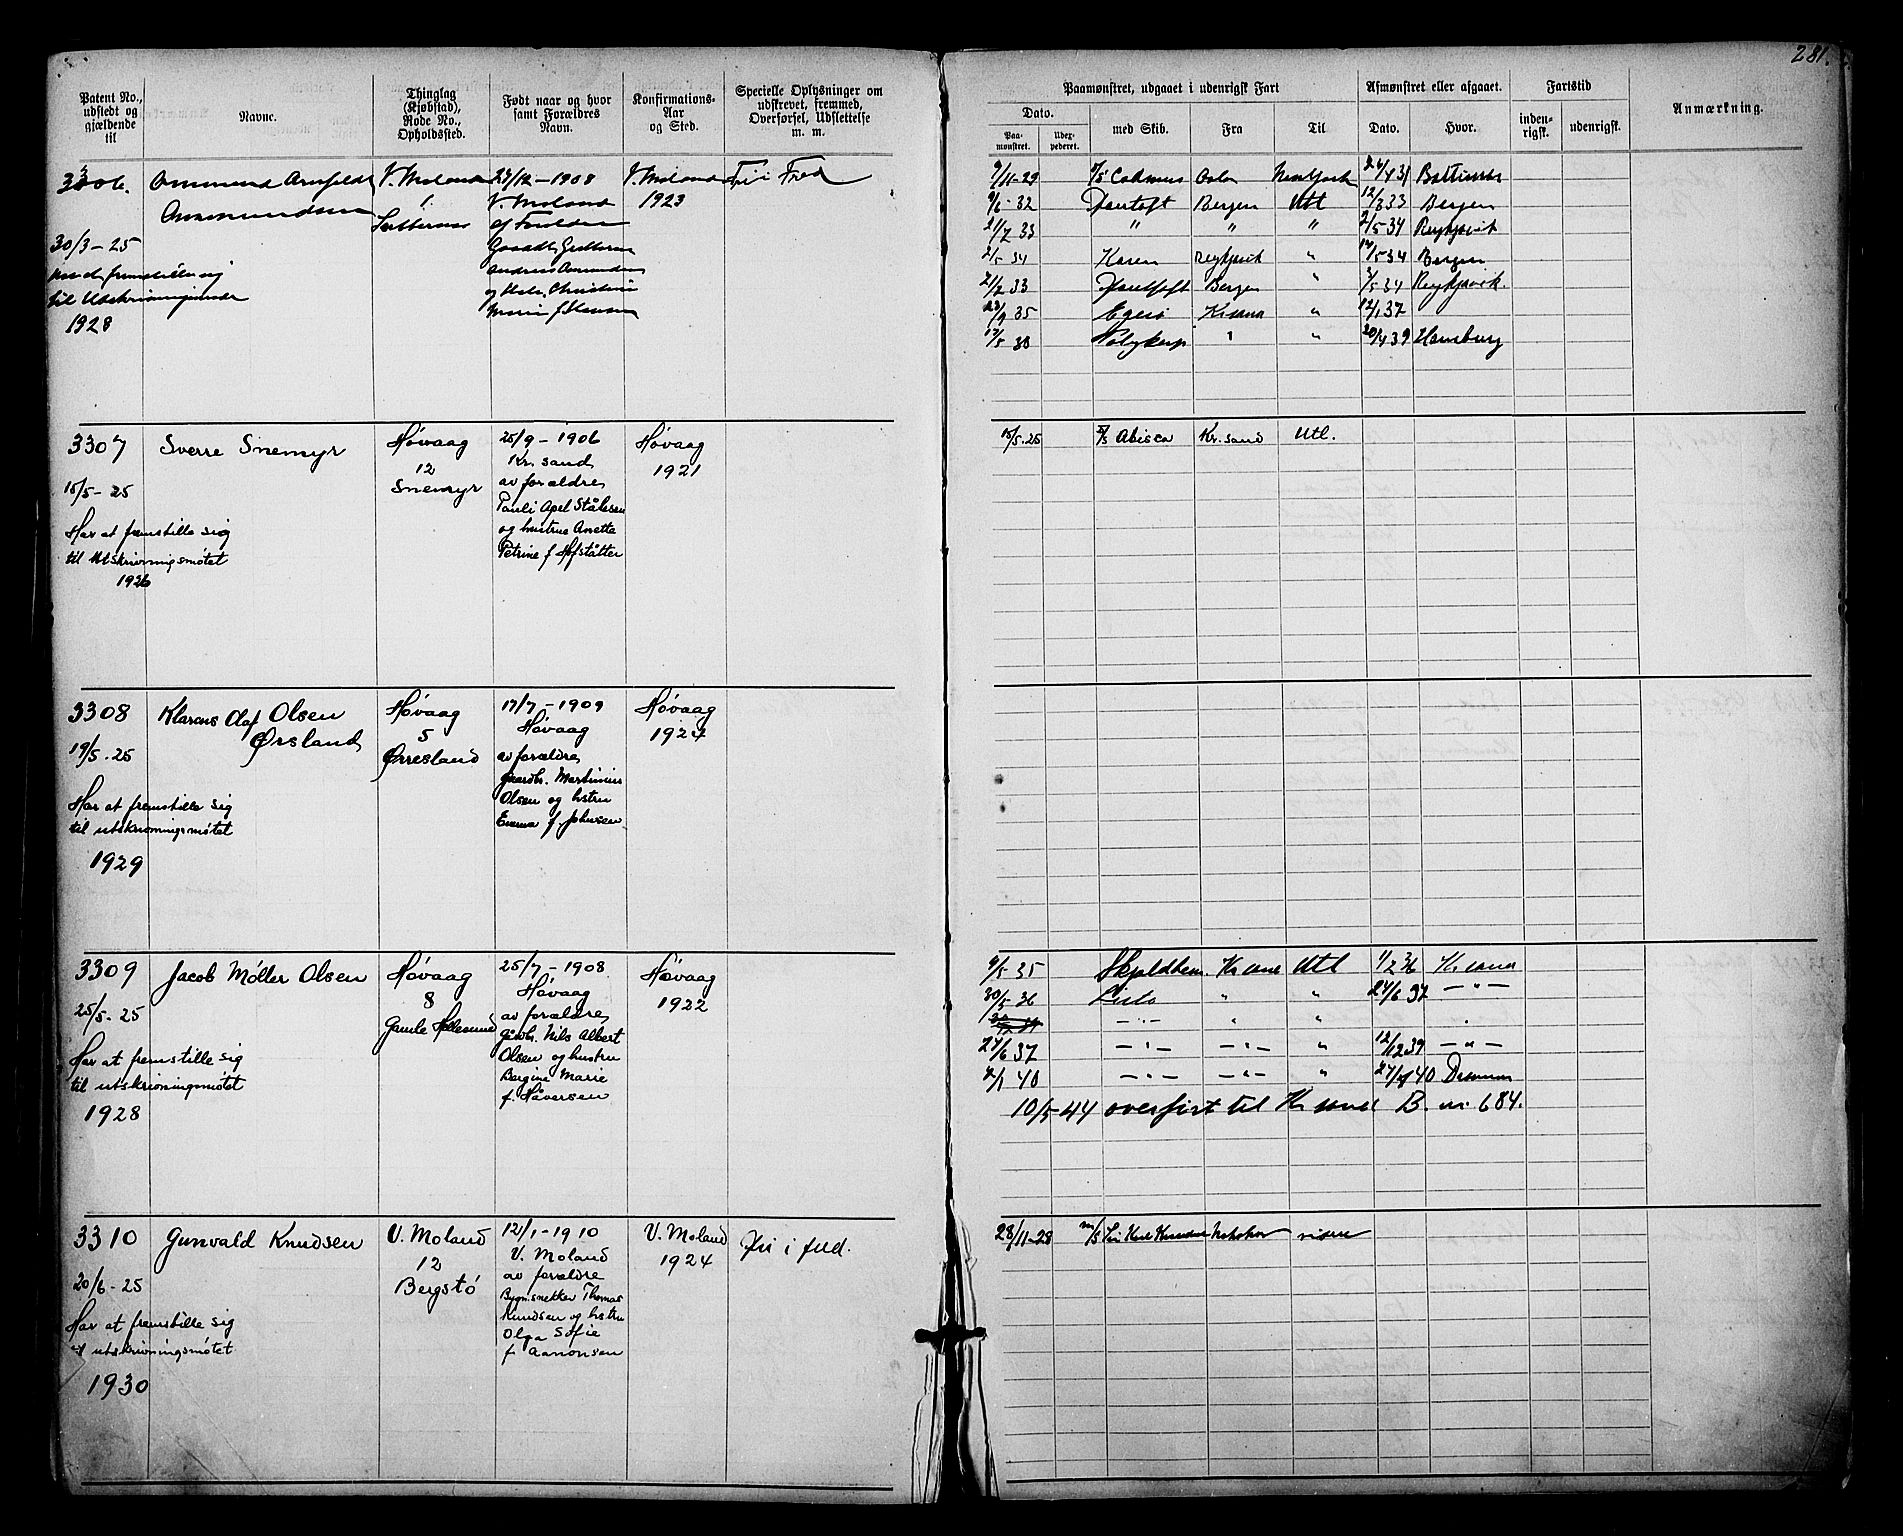 281.
Patent No., udstedt og gjældende til
Navne.
Thinglag (Kjøbstad), Rode No., Opholdssted.
Født naar og hvor samt Forældres Navn.
Konfirmations-Aar og Sted.
Specielle Oplysninger om udskrevet, fremmed, Overførsel, Udslettelse m. m.
Paamønstret, udgaaet i udenrigsk Fart
Afmønstret eller afgaaet.
Fartstid
Anmærkning.
Dato.
Paa-mønstret.
Udex-pederet.
med Skib.
Fra
Til
Dato.
Hvor.
inden-rigsk.
udenrigsk.
3306.
30/3-25
til Utskrivningsmøde
1928
Ammund Arnfeldt
Ammundsen
V. Moland
1
29/12-1908
V. Moland
af Foreldre
V. Moland
1923
Fri i Fred
9/11-29 Cadmus Oslo Newyork Baltimore
9/6-32 Fantoft Bergen Utl 12/3 33 Bergen
21/7 33 " " " 2/5-34 Reykjavik
2/5 34 Karen Reykjavik " 14/5-34 Bergen
21/7 33 Fantoft Bergen " 2/5 34 Reykjavik
23/9 35 Egerø Krsand " 12/1 37
12/5 38 Polykarp " " 20/4 39 Hamburg
3307
15/5-25
Har at fremstille sig
til Utskrivningsmøtet
1926
Sverre Snemyr
Høvaag
12
Snemyr
25/9-1906
Kr. sand
av forældre
Pauli Apel Stålesen
og hustru Anette
Petrine f. Hofståtter
Høvaag
1921
15/5-25 S/S Abisco Kr. sand Utl.
3308
19/5-25
Har at fremstille sig
til utskrivningsmøtet
1929
Klarens Olaf Olsen
Ørsland
Høvaag
5
Ørresland
17/7-1909
Høvaag
av forældre
Gaardbr. Martinius
Olsen og hstru
Emma f. Johnsen
Høvaag
1924
3309
25/5-25
Har at fremstille sig
til utskrivningsmøtet
1928
Jacob Møller Olsen
Høvaag
8
Gamle Hellesund
25/7-1908
Høvaag
av forældre
Gårdb. Nils Albert
Olsen og hustru
Bergine Marie
f. Håversen
Høvaag
1922
9/5 35 Skjoldheim Kr sand Utl 1/2 36 Kr sand
30/5 36 " " 24/6 37 -"-
-"- " "
24/6 37 -"- -"- " 12/12 39 -"-
2/1 40 -"- -"- " 27/4 40 Drammen
10/5-44 overført til Kr sand B. nr. 684.
3310
20/6-25
Har at fremstille sig
til utskrivningsmøtet
1930
Gunvald Knudsen
V. Moland
12
Bergstø
12/1-1910
V. Moland
av forældre
Bygn.snekker Thomas
Knudsen og hstru
Olga Sofie
f. Aanonsen
V. Moland
1924
Fri i fred.
28/11-28 M/S Karl Knudsen